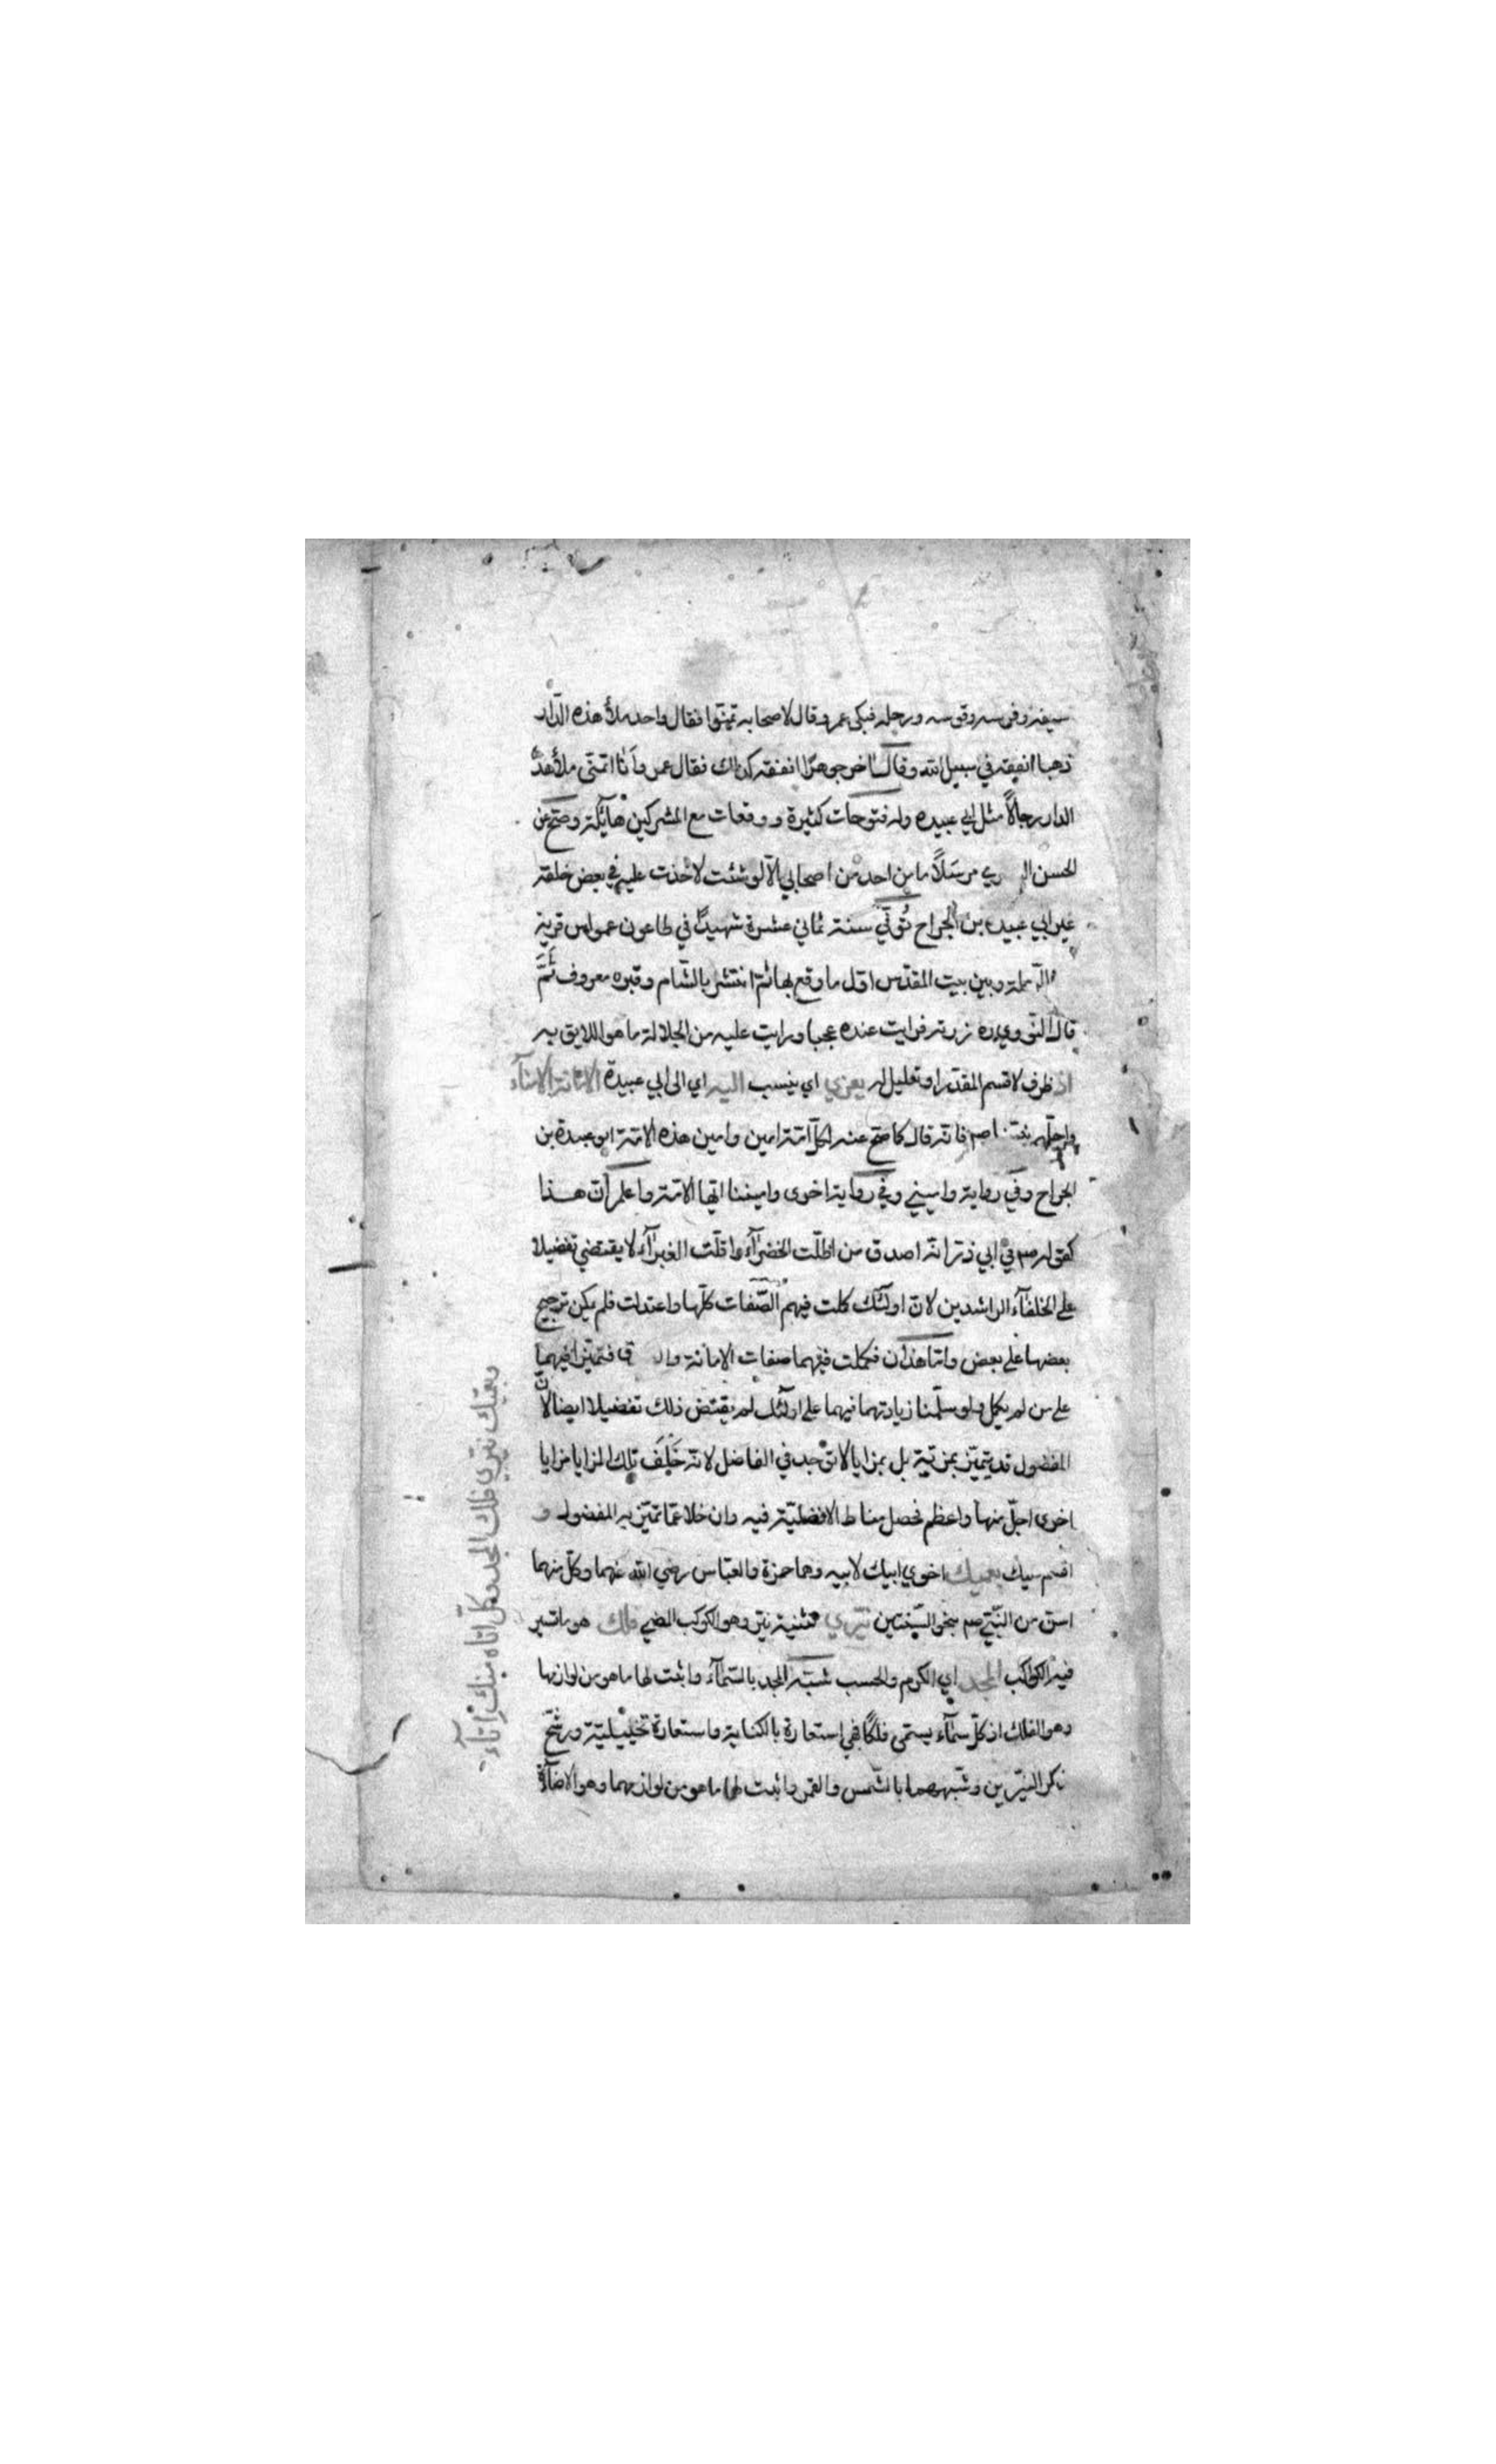 سيفه وفرسه وقوسه ورحله فبكى عمر وقال لاصحابه تمنّوا فقال واحد ملأ هذه الدّار
ذهبا انفقه في سبيل الله وقال آخر جوهرًا انفقه كذلك فقال عمر وأنا اتمنّى ملأ هذه
الدار رجالاً مثل ابي عبيده وله فتوحات كثيرة ووقعات مع المشركين هائلة وصحّ عن
الحسن مرسلاً ما من احد من اصحابي الّا لو شئت لاخذت عليه في بعض خلقه
غير ابي عبيده بن الجراح تُوفّي سنة ثماني عشرة شهيدًا في طاعون عمواس قرية
الرّملة وبين بيت المقدّس اوّل ما وقع بها ثم انتشر بالشّام وقبره معروف ثَمَّ
قال النّووي زرته فرايت عنده عجبا ورايت عليه من الجلالة ما هو اللايق به
اذ ظرف لاقسم المقدّر او تعليل له يعزي اي ينسب اليه اي الى ابي عبيدة الامانة الامنآء
واجلّهم فانّه قال كما صحّ عنه لكلّ امّة امين وامين هذه الامّة ابو عبيدة بن
الجراح وفي رواية واميني وفي رواية اخرى واميننا ايّها الامّة واعلم أنّ هذا
كقوله صم في ابي ذرّ انّه اصدق من اظلّت الخضرآء واقلّت الغبرآء لا يقتضي تفضيلا
على الخلفآء الراشدين لانّ اولئك كملت فيهم الصّفات كلّها واعتدلت فلم يكن ترجيح
بعضها على بعض وامّا هذان فكملت فيهما صفات الامانة فتميّزا فيهما
على من لم يكمل ولو سلّمنا زيادتهما فيهما على اولئك لم يقتض ذلك تفضيلا ايضا لانّ
المفضول قد يتميّز بمزيّة بل بمزايا لا توجد في الفاضل لانّه خَلَفَ تلك المزايا مزايا
اخرى اجلّ منها واعظم فحصل مناط الافضليّة فيه وان خلا عمّا تميّز به المفضول و
اقسم عليك بعميك اخوي ابيك لابيه وهما حمزة والعبّاس رضي الله عنهما وكلّ منهما
اسنّ من النّبيّ صم بنحو السّنتين نيّري تثنية نيّر وهو الكوكب المضي فلك هو ما تسير
فيه الكواكب المجد اي الكرم والحسب شبّه المجد بالسّمآء واثبت لها ما هو من لوازمها
وهو الفلك اذ كلّ سمآء يسمى فلكًا فهي استعارة بالكناية واستعارة تخييليّة ورشّح
ذكر النيّرين وشبّههما بالشّمس والقمر واثبت لها ما هو من لوازمهما وهو الاضآءة
وبعميك نيّري فلك المجد وكلّ اتاه منك اتآء